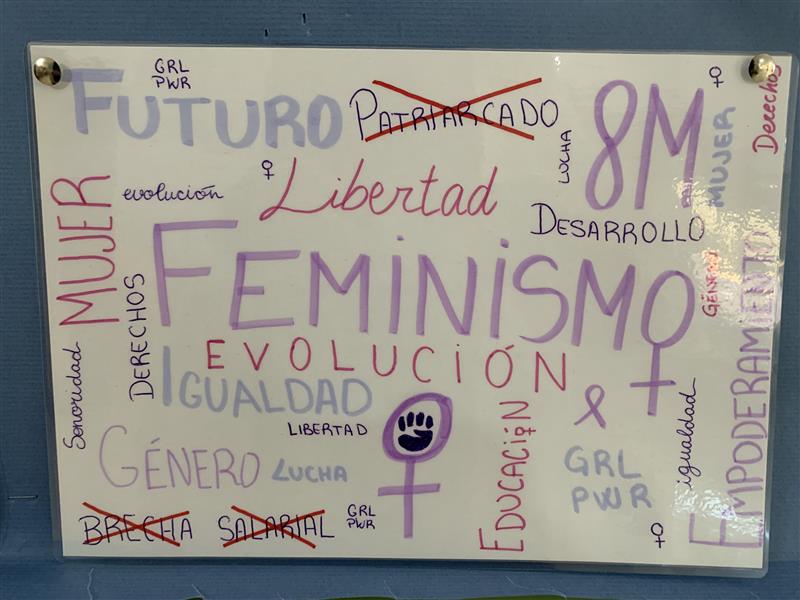 GRL
PWR
FUTURO
PATRIARCADO
8M
MUJER
Derechos
LUCHA
MUJER
evolución
Libertad
DESARROLLO
FEMINISMO
GÉNERO
DERECHOS
EVOLUCIÓN
EMPODERAMIENTO
Sonoridad
IGUALDAD
LIBERTAD
EDUCACIÓN
igualdad
GÉNERO
LUCHA
GRL
PWR
BRECHA SALARIAL
GRL
PWR